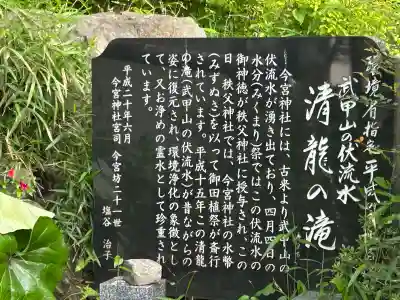 環境省指定 平成の
武甲山の伏流水
清龍の滝
今宮神社には、古来より武甲山の
伏流水が湧き出ており、四月四日の
水分(みくまり)祭ではこの伏流水の
御神徳が秩父神社に授与され、この
日 秩父神社では、今宮神社の水幣
(みずぬさ)を以って御田植祭が斎行
されています。平成十五年この清龍
の滝(武甲山の伏流水)が昔ながらの
姿に復元され、環境浄化の象徴とし
て、又お浄めの霊水として珍重され
ています。
平成二十年六月
今宮神社宮司 今宮坊二十一世
塩谷 治子